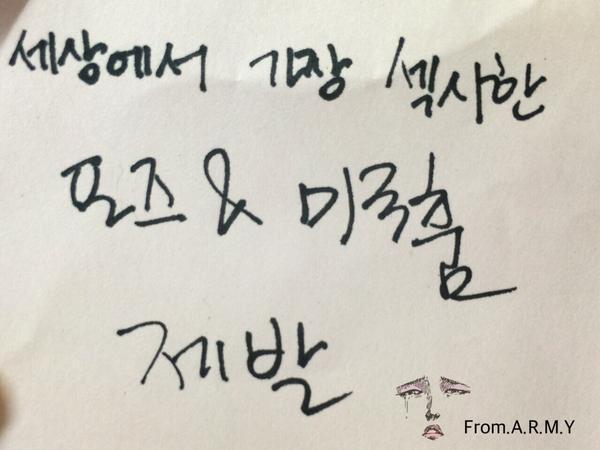 세상에서 가장 섹시한
포즈 & 미국춤
제발
From.A.R.M.Y